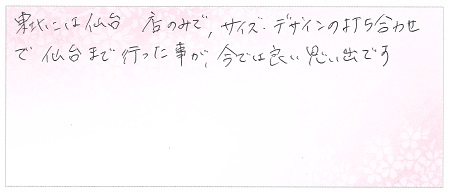 東北には仙台 店のみで、サイズ・デザインの打ち合わせ
で 仙台まで行った事が、今では良い思い出です